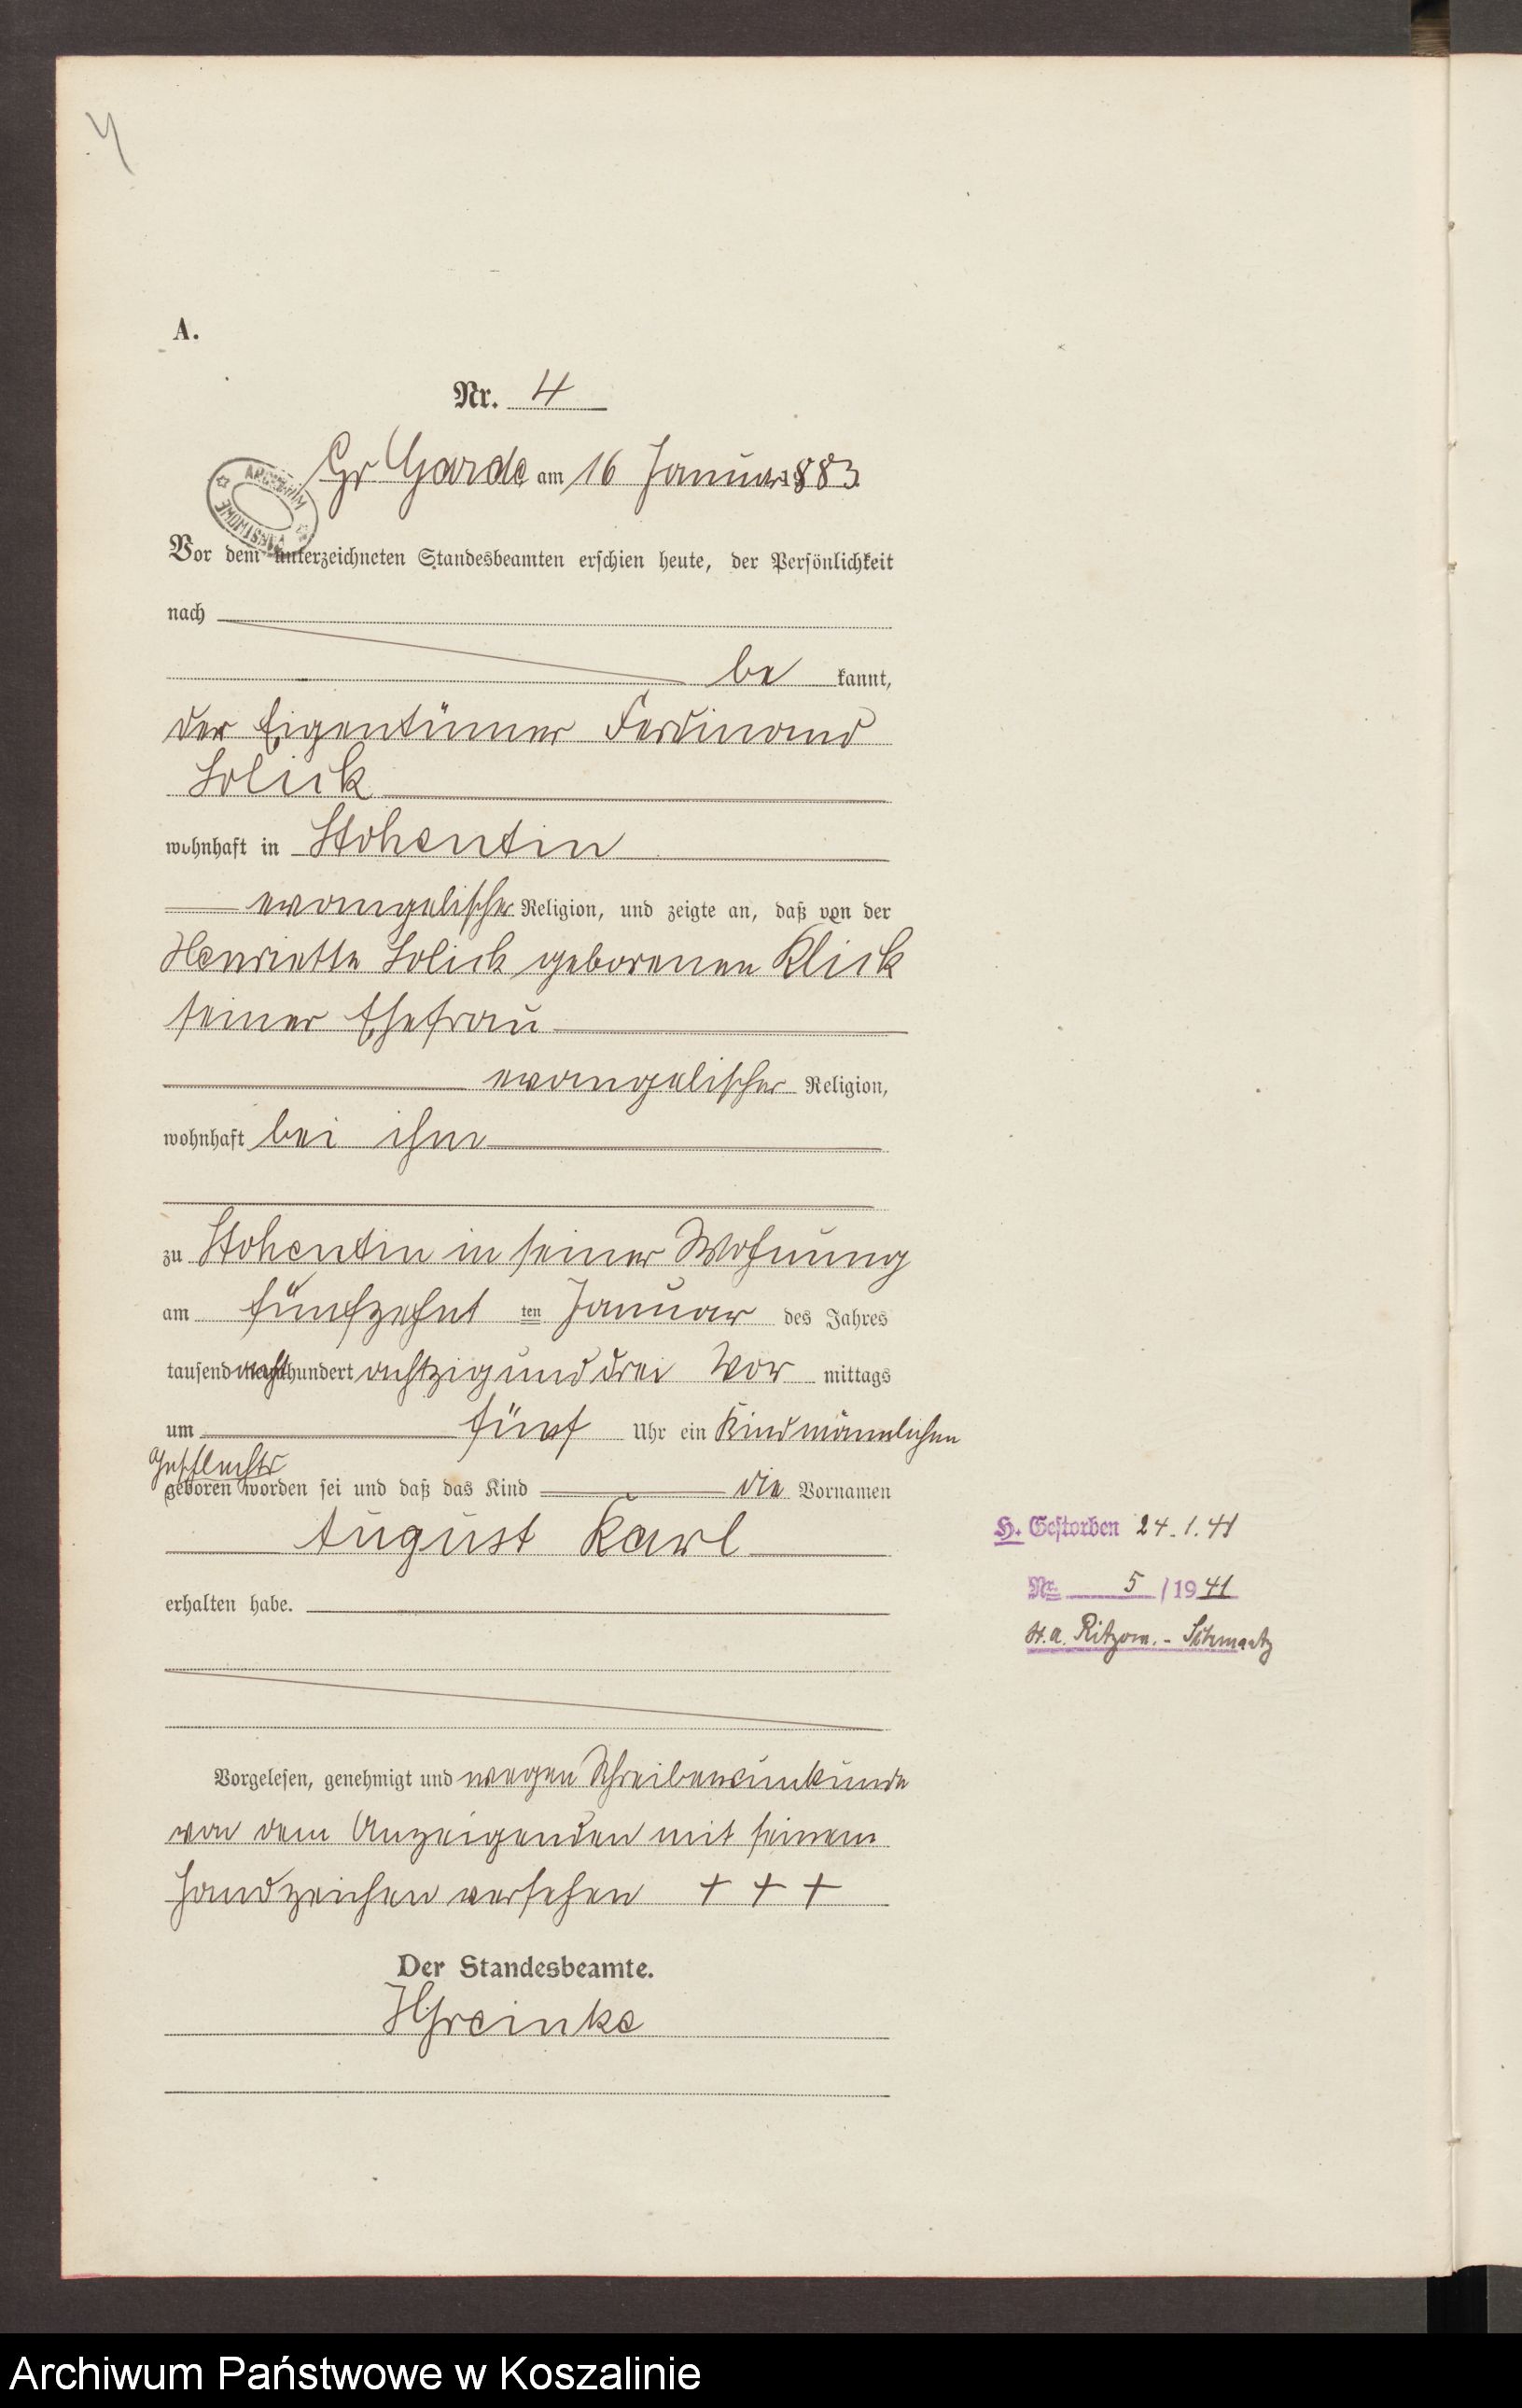 4
A.
Nr. 4
Gr Garde am 16 Januar 1883
ARCHIWUM PAŃSTWOWE
Vor dem unterzeichneten Standesbeamten erschien heute, der Persönlichkeit
nach
be kannt,
der Eigentümer Ferdinand
Lolick
wohnhaft in Stohentin
evangelischer Religion, und zeigte an, daß von der
Henriette Lolick geborenen Klick
seiner Ehefrau
evangelischer Religion,
wohnhaft bei ihm
zu Stohentin in seiner Wohnung
am fünfzehnt ten Januar des Jahres
tausend achthundert achtzig und drei Vor mittags
um fünf Uhr ein Kind männlichen
Geschlechts
geboren worden sei und daß das Kind die Vornamen
August Karl
erhalten habe.
H. Gestorben 24.1.41
Nr. 5 / 1941
St.A. Ritzow. - Schmaatz
Vorgelesen, genehmigt und wegen Schreibensunkunde
von dem Anzeigenden mit seinem
Handzeichen versehen + + +
Der Standesbeamte.
HGreinke
Archiwum Państwowe w Koszalinie